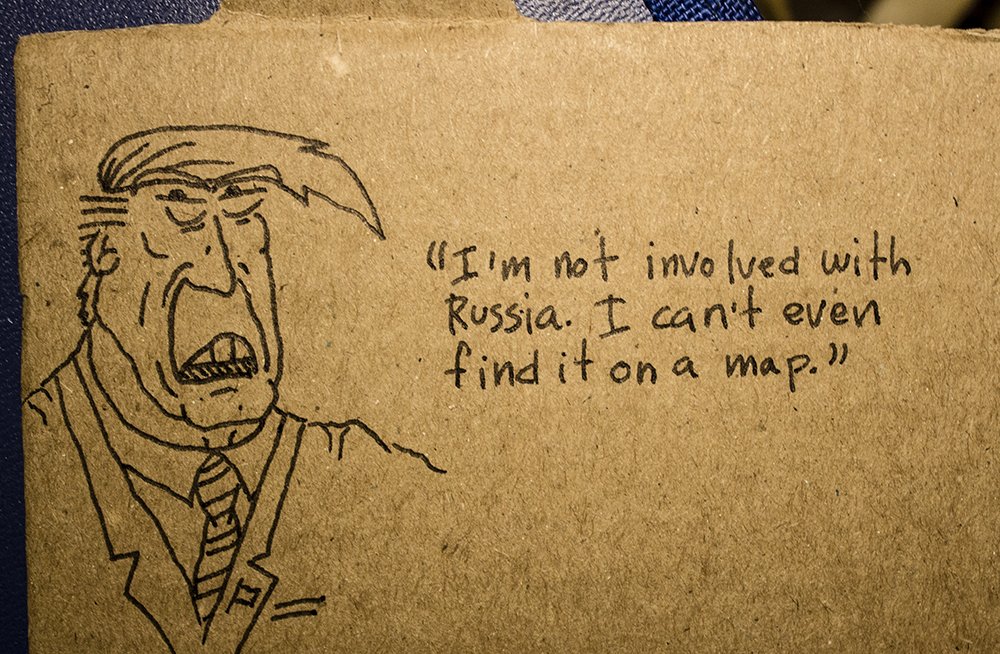 “I'm not involved with
Russia. I can't even
find it on a map.”